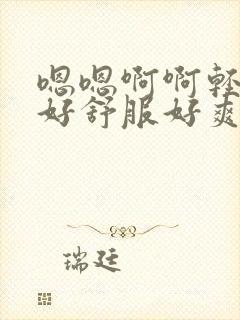 嗯嗯啊啊轻
好舒服好爽
瑞廷